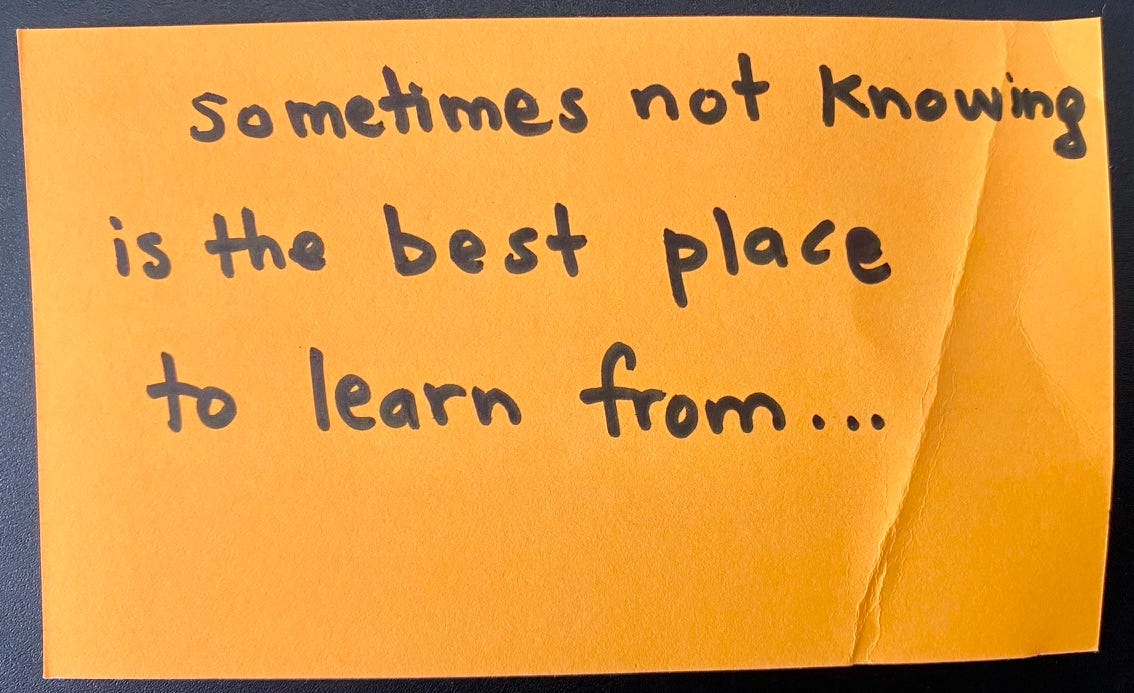 sometimes not knowing
is the best place
to learn from...